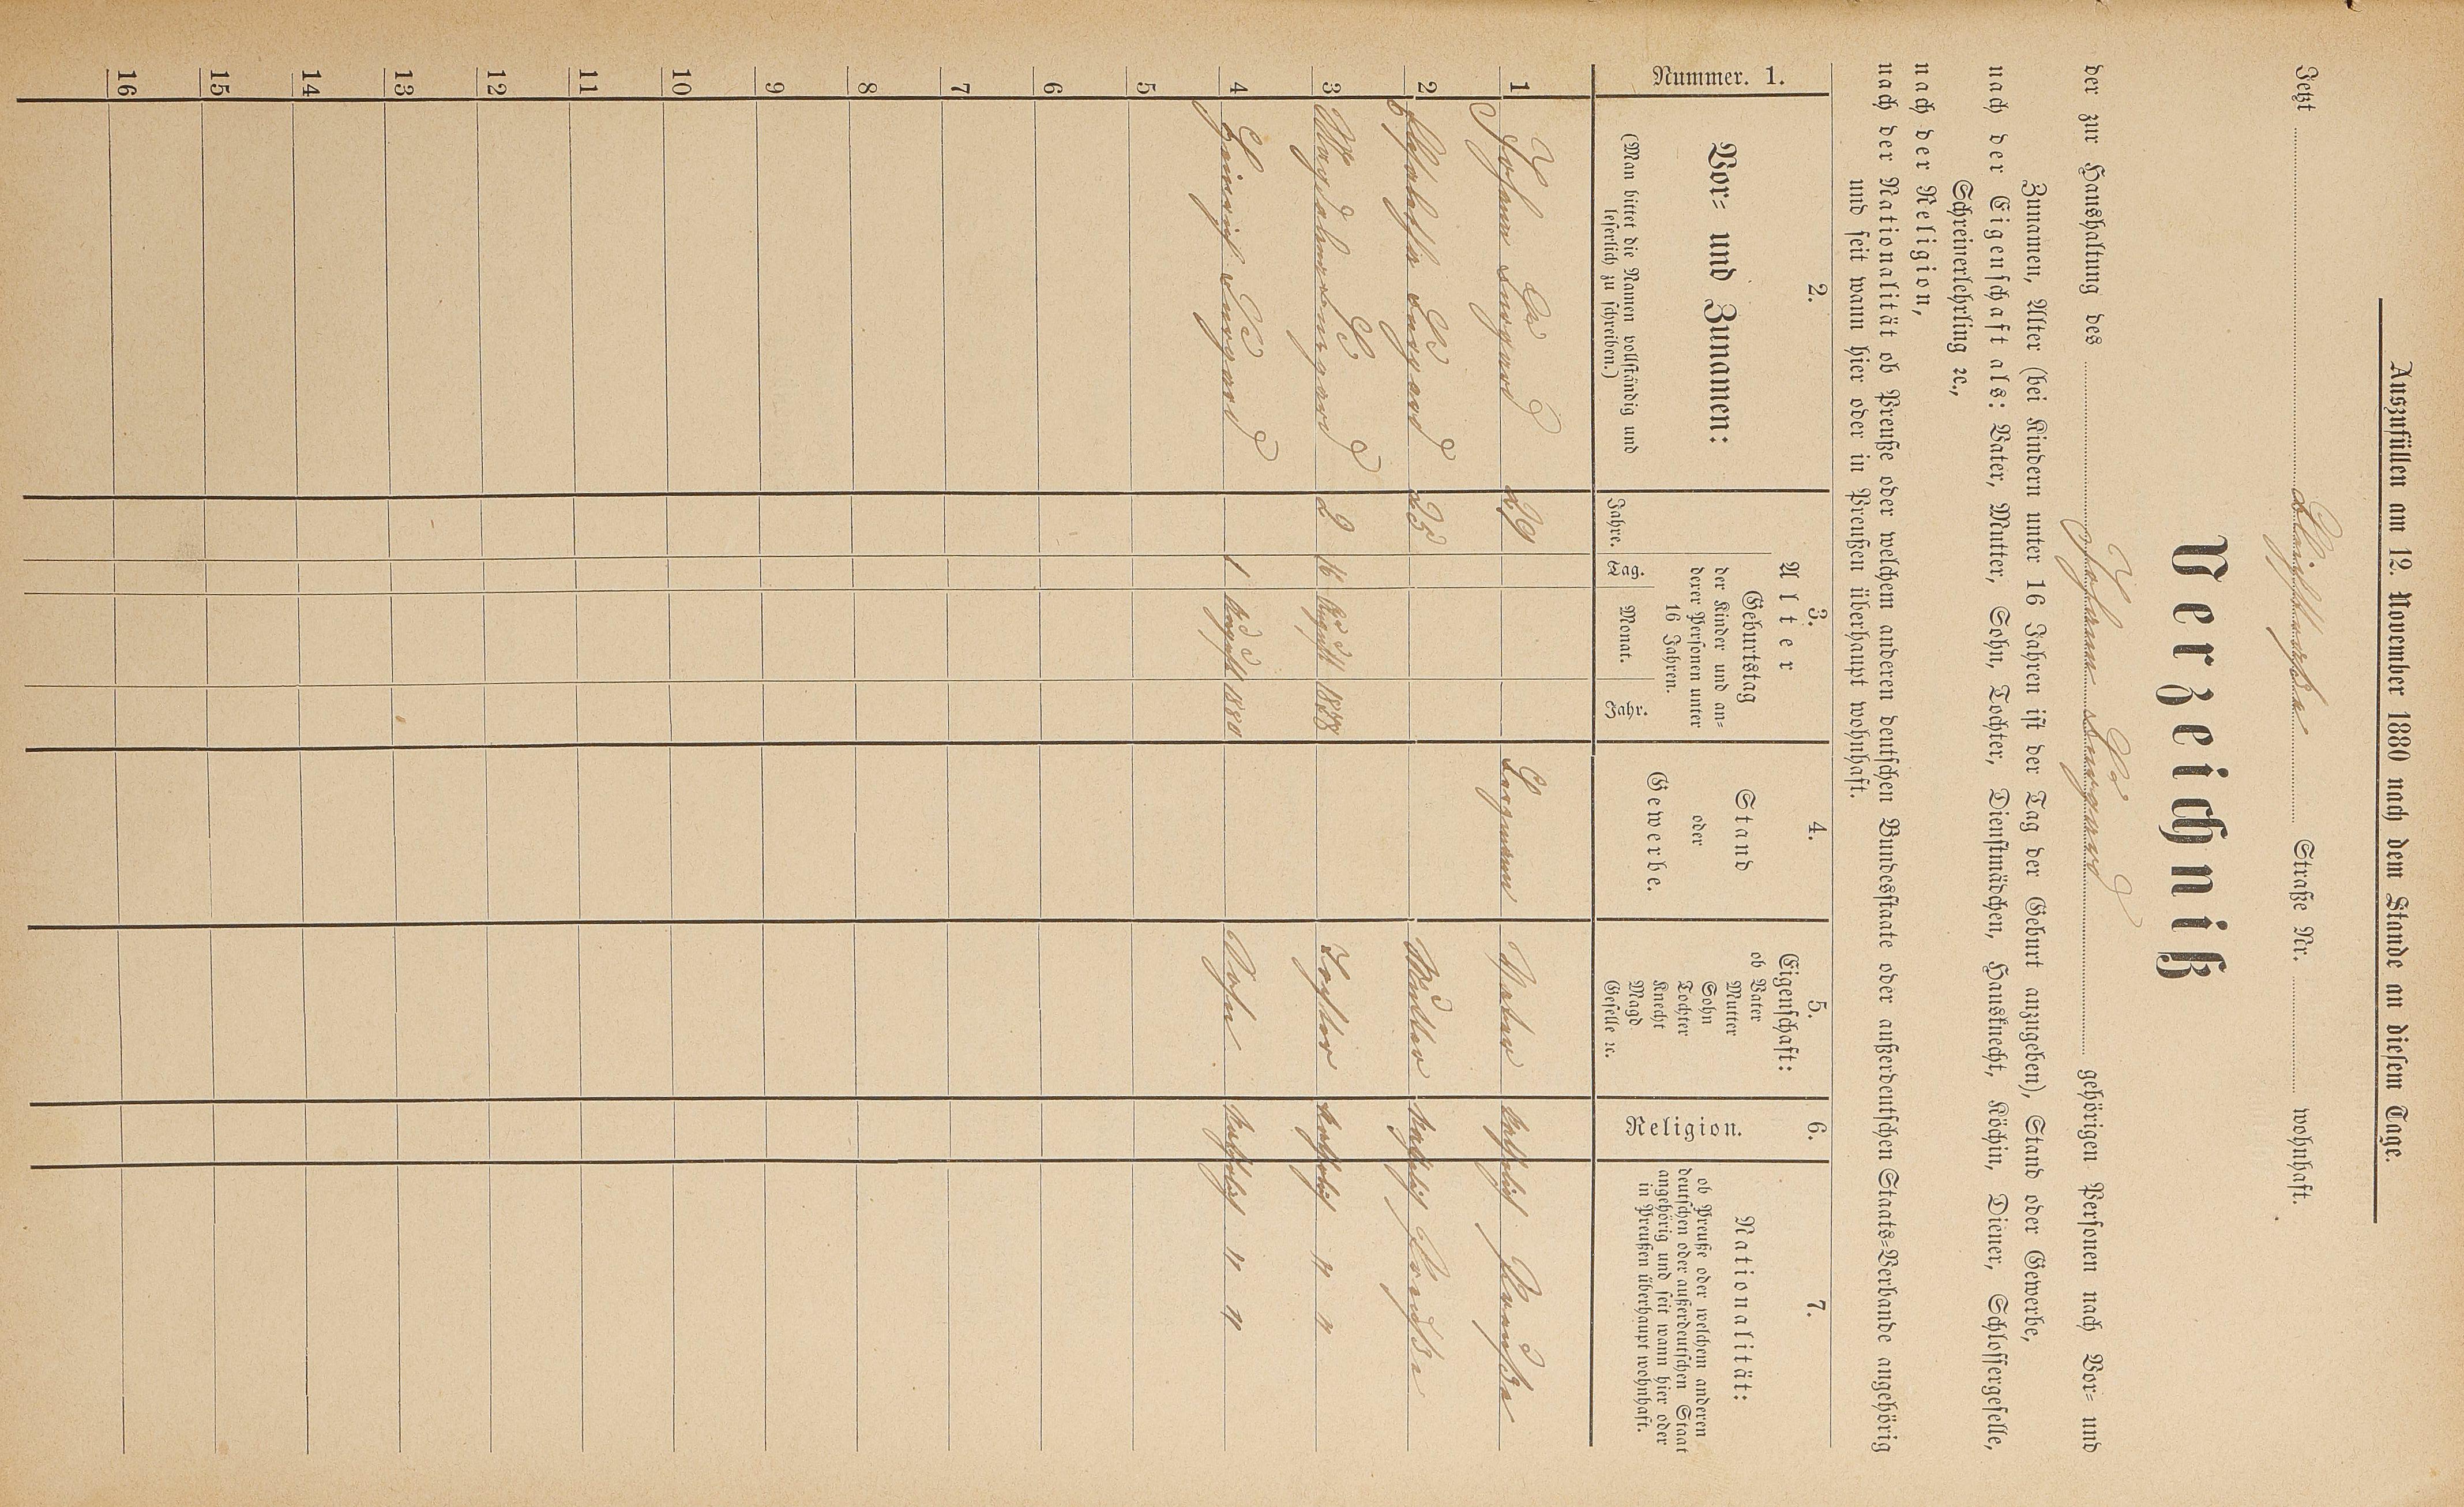 Auszufüllen am 12. November 1880 nach dem Stande an diesem Tage.
Jetzt Straße Nr. wohnhaft.
Verzeichniß
der zur Haushaltung des Johann gehörigen Personen nach Vor- und
Zunamen, Alter (bei Kindern unter 16 Jahren ist der Tag der Geburt anzugeben), Stand oder Gewerbe,
nach der Eigenschaft als: Vater, Mutter, Sohn, Tochter, Dienstmädchen, Hausknecht, Köchin, Diener, Schlossergeselle,
Schreinerlehrling ꝛc.,
nach der Religion,
nach der Nationalität ob Preuße oder welchem anderen deutschen Bundesstaate oder außerdeutschen Staats-Verbande angehörig
und seit wann hier oder in Preußen überhaupt wohnhaft.
Nummer. 1.
2.
Vor- und Zunamen:
(Man bittet die Namen vollständig und
leserlich zu schreiben.)
3.
Alter
Jahre.
Geburtstag
der Kinder und an-
derer Personen unter
16 Jahren.
Tag. Monat. Jahr.
4.
Stand
oder
Gewerbe.
5.
Eigenschaft:
ob Vater
Mutter
Sohn
Tochter
Knecht
Magd
Geselle ꝛc.
6.
Religion.
7.
Nationalität:
ob Preuße oder welchem anderen
deutschen oder außerdeutschen Staat
angehörig und seit wann hier oder
in Preußen überhaupt wohnhaft.
1 Johann 29 Bergmann Vater Preuße
2 25 Mutter Preuße
3 Magdalena 2 16 August 1878 Tochter katholisch " "
4 Heinrich 1 August 1880 Sohn katholisch " "
5
6
7
8
9
10
11
12
13
14
15
16